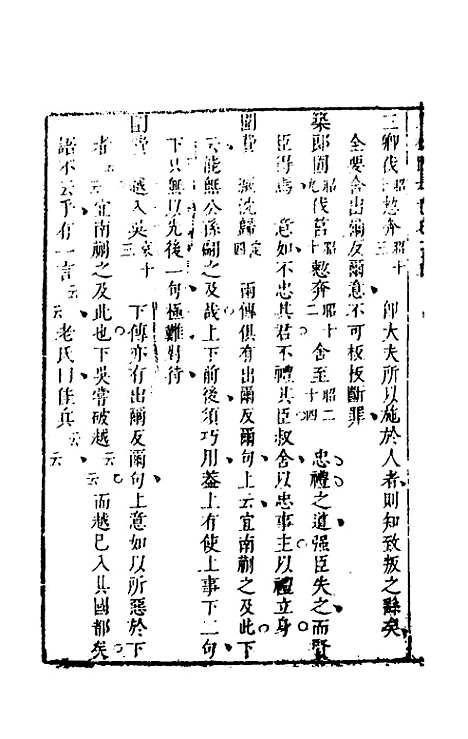 三卿伐昭十憖奔昭十三 卽大夫所以施於人者則知致叛之辭矣
全要舍出爾反爾意不可板板斷罪
築郎囿昭九伐莒昭十憖奔昭十二舍至昭二十四 忠禮之道强臣失之而賢
臣得焉 意如不忠其君不禮其臣叔舍以忠事主以禮立身
圍費 滅沈歸定四 兩傳俱有出爾反爾句上云宜南蒯之及此下
云能無公孫翩之及哉上下前後須巧用蓋上有使上事下二句
下只無以先後一句極難對待
圍費 越入吳哀十三 下傳亦有出爾反爾句上意如以所惡於下
者云云宜南蒯之及此也下吳嘗破越云云而越已入其國都矣
語不云乎有一言云云老氏曰佳兵云云